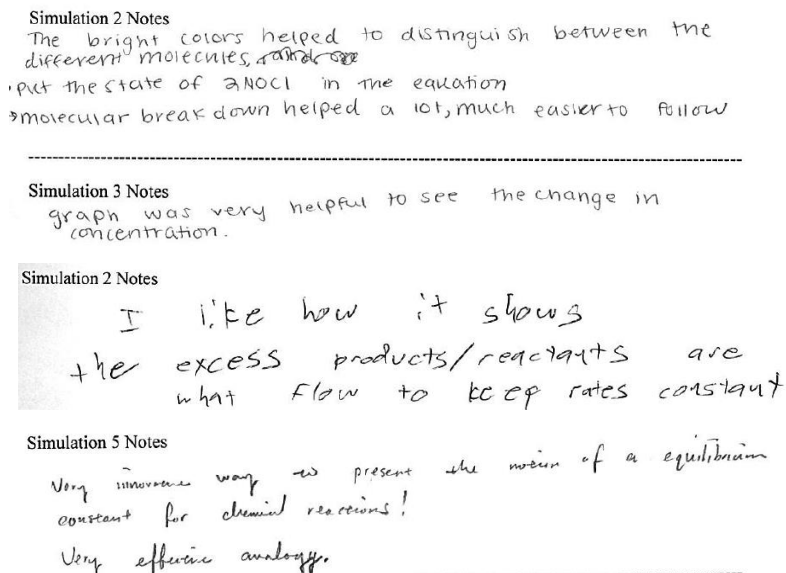 Simulation 2 Notes
The bright colors helped to distinguish between the
different molecules,
• put the state of 2NOCl in the equation
molecular break down helped a lot, much easier to follow
Simulation 3 Notes
graph was very helpful to see the change in
concentration.
Simulation 2 Notes
I like how it shows
the excess products/reactants are
what flow to keep rates constant
Simulation 5 Notes
Very way to present the notion of a equilibrium
constant for chemical reactions!
Very effective analogy.